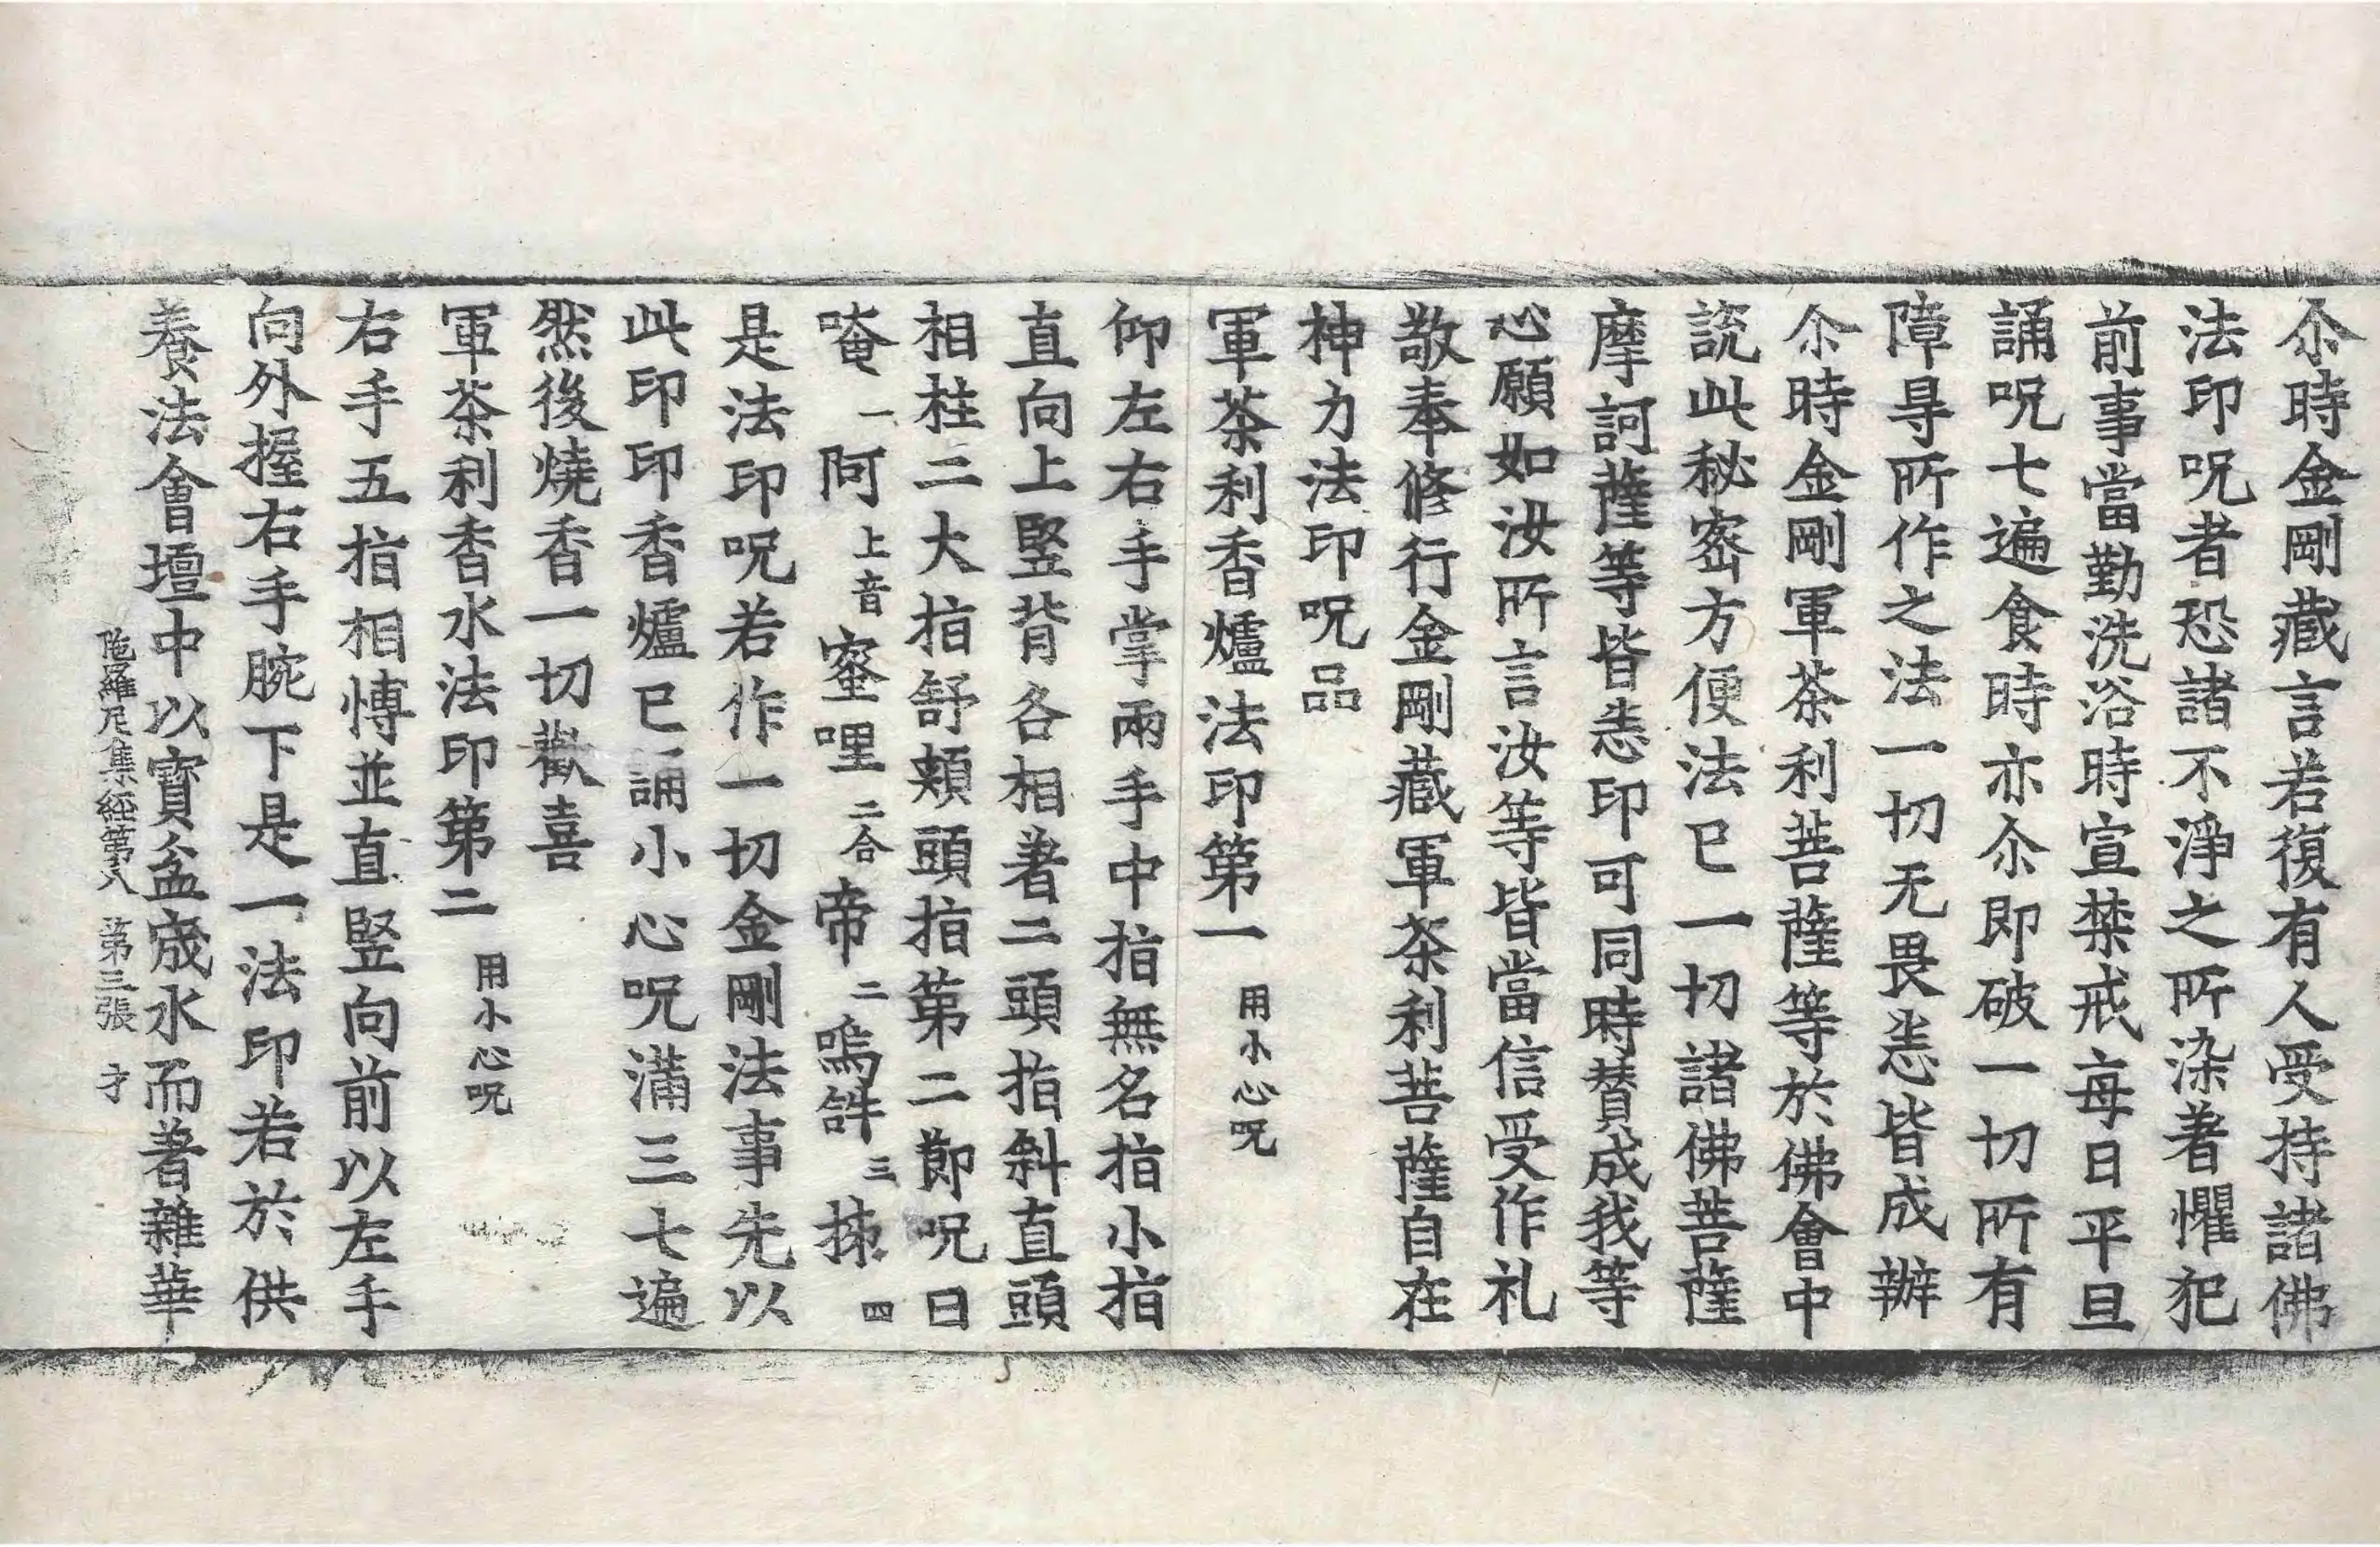 尒時金剛藏言若復有人受持諸佛
法印呪者恐諸不淨之所染著懼犯
前事當勤洗浴時宣禁戒每日平旦
誦呪七遍食時亦尒即破一切所有
障㝵所作之法一切无畏悉皆成辦
尒時金剛軍茶利菩薩等於佛會中
説此秘密方便法已一切諸佛菩薩
摩訶薩等皆悉印可同時賛成我等
心願如汝所言汝等皆當信受作礼
敬奉修行金剛藏軍茶利菩薩自在
神力法印呪品
軍茶利香爐法印第一 用小心呪
仰左右手掌兩手中指無名指小指
直向上竪背各相著二頭指斜直頭
相柱二大指舒頰頭指第二節呪曰
唵 一 阿 上音 蜜哩 二合 帝 二 嗚𤙖 三 抹 四
是法印呪若作一切金剛法事先以
此印印香爐已誦小心呪滿三七遍
然後燒香一切歡喜
軍茶利香水法印第二 用小心呪
右手五指相愽並直竪向前以左手
向外握右手腕下是一法印若於供
養法會壇中以寶盆盛水而著雜華
陁羅尼集經第八 第三張 才